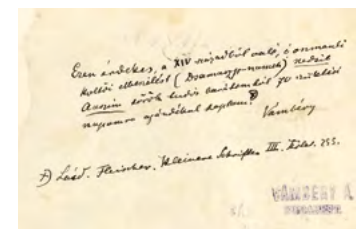 Ezen érdekes, a XIV századból való, ó osmanli
költői elbeszélést (Dsamaszp-nameh) nedzib
Aaszim török tudós barátomtól 70 születési
napomra ajándékul kaptam.
Vámbéry
Lásd. Fleischer, Kleinere Schriften III. 255.
VAMBERY A.
BUDAPEST